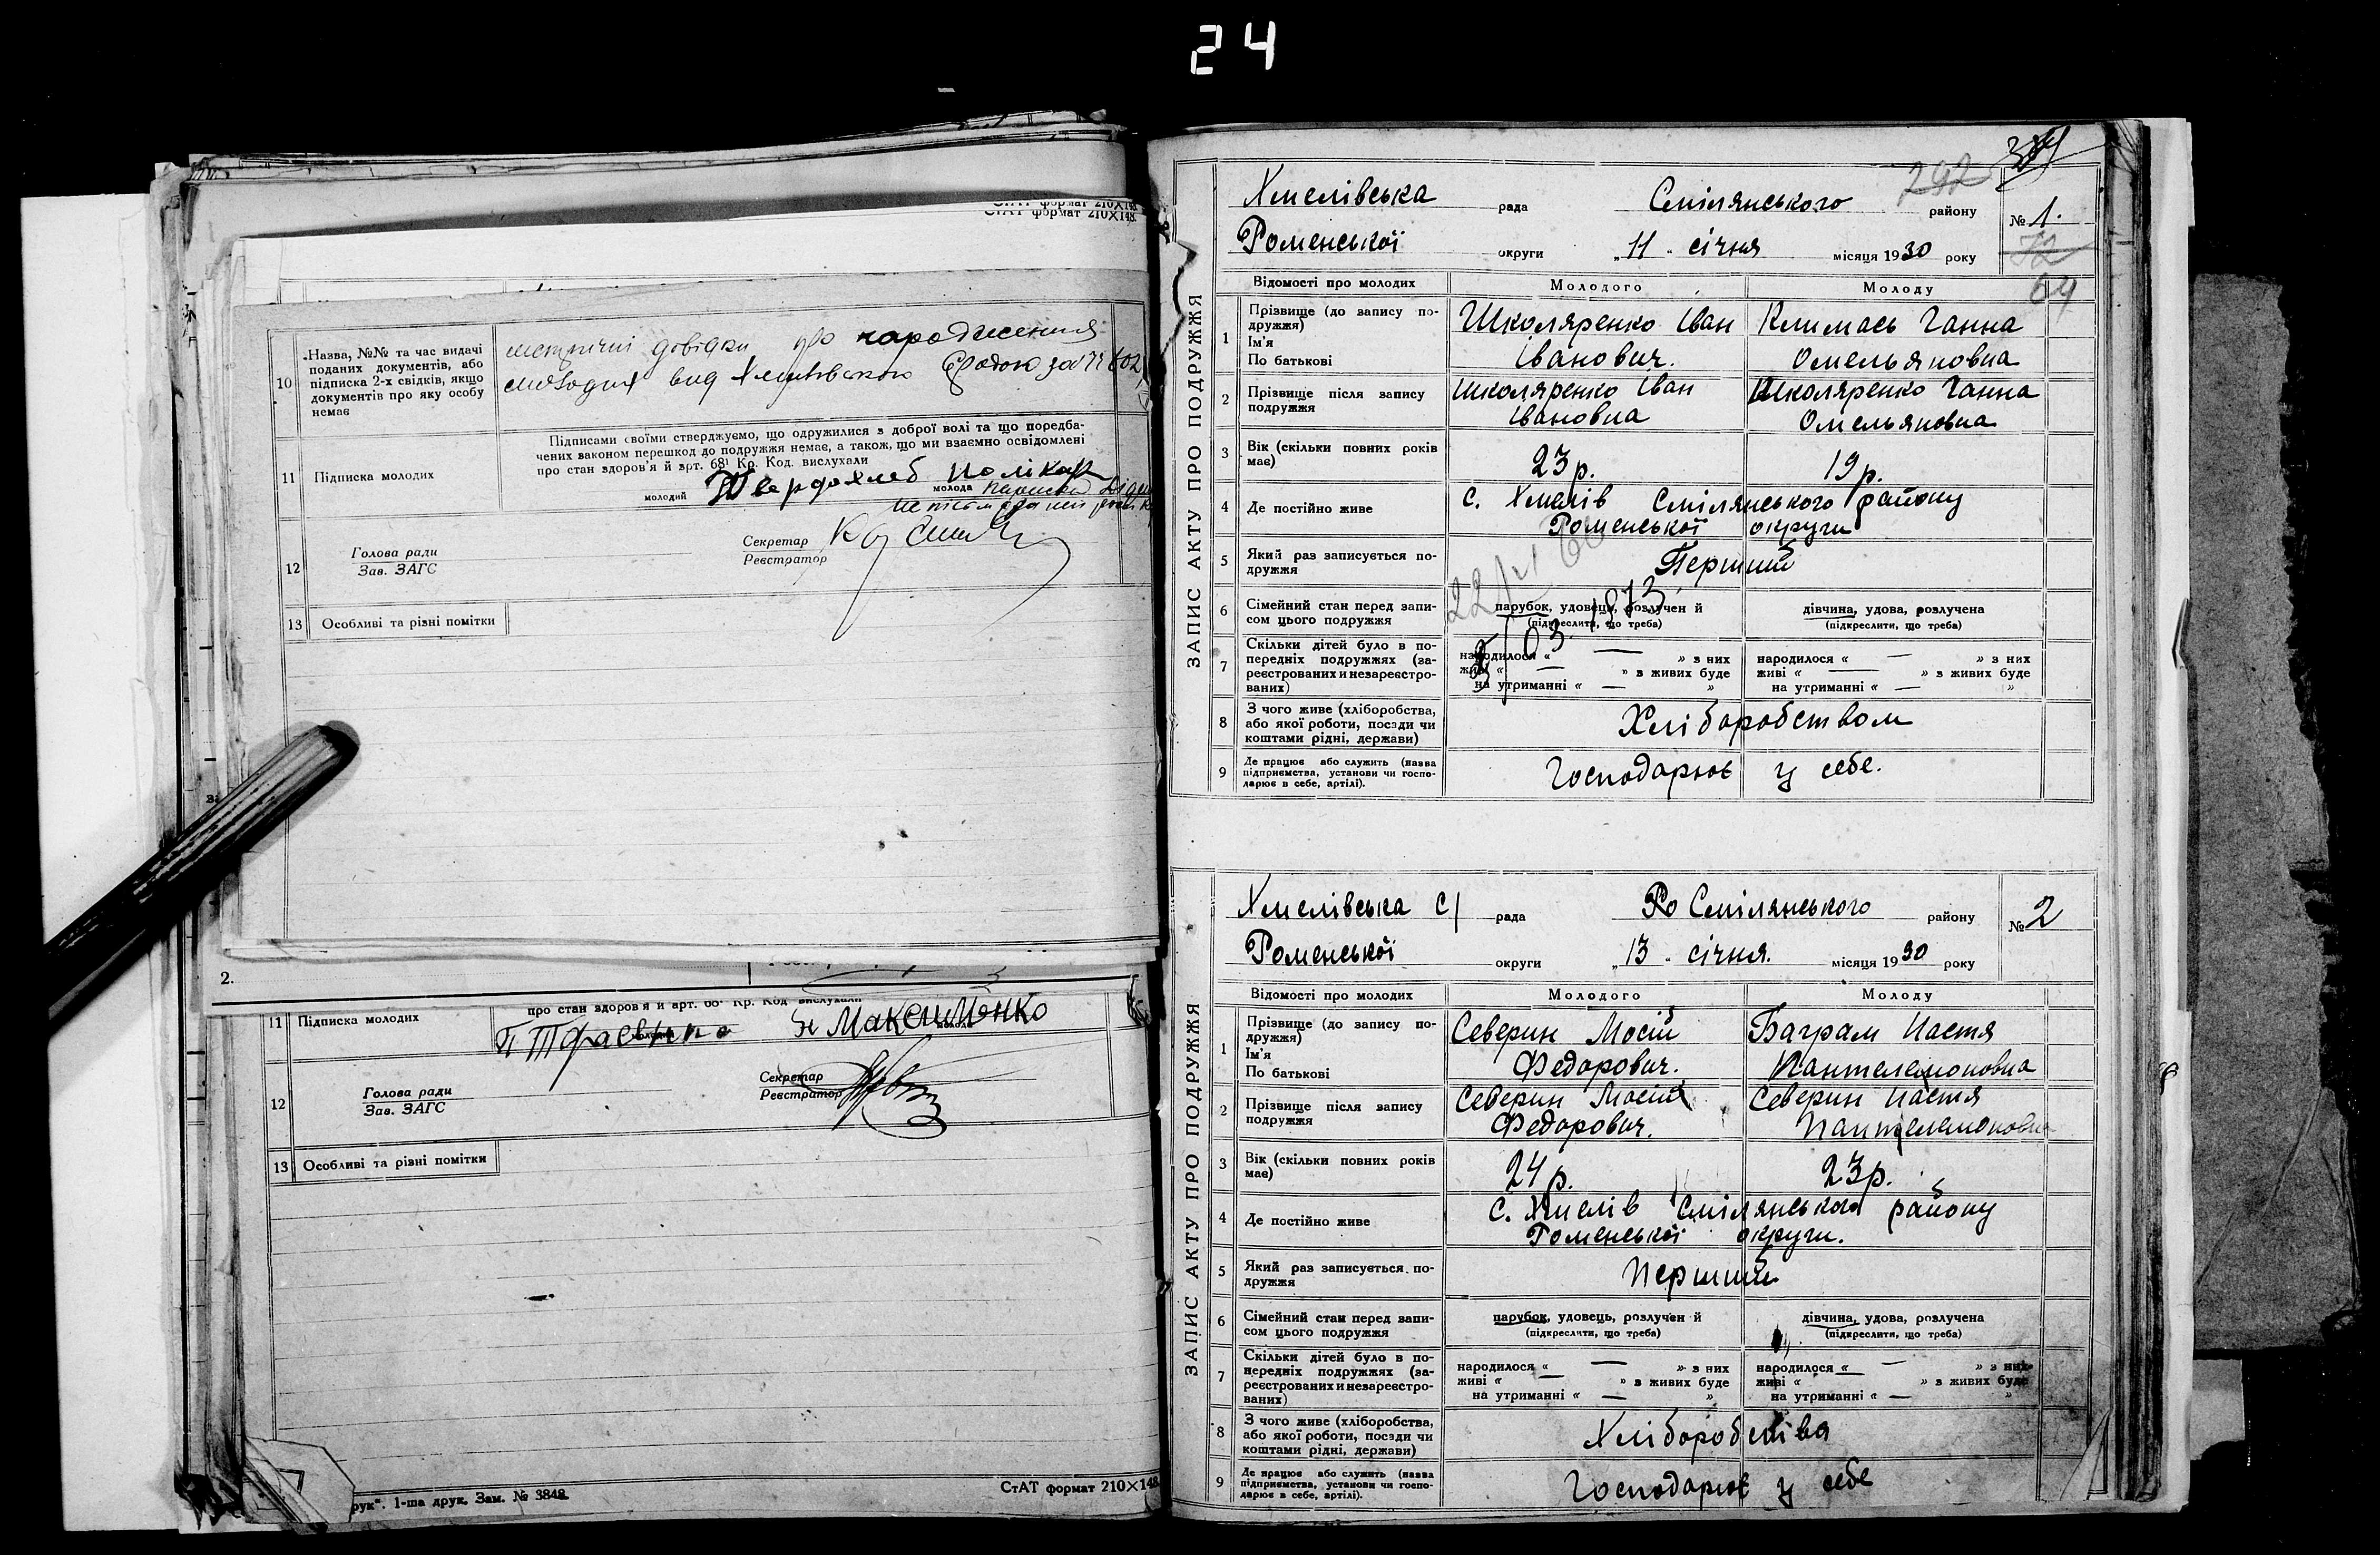 24
СтАТ формат 210×148.
10 Назва, №№ та час видачі поданих документів, або підписка 2-х свідків, якщо документів про яку особу немає
метричні довідки про народження
молодих від Хмелівською Радою за № 602
11 Підписка молодих
Підписами своїми стверджуємо, що одружилися з доброї волі та що поредба-
чених законом перешкод до подружжя немає, а також, що ми взаємно освідомлені
про стан здоров'я й арт. 68¹ Кр. Код. вислухали
молодий Твердохлеб Полікар
молода
12 Голова ради
Зав. ЗАГС
Секретар
Реєстратор
13 Особливі та різні помітки
2.
про стан здоров'я й арт. 68¹ Кр. Код вислухали
11 Підписка молодих
Н Максименко
12 Голова ради
Зав. ЗАГС
Секретар
Реєстратор
13 Особливі та різні помітки
рук“. 1-ша друк. Зам. № 3848.
СтАТ формат 210×148.
292
ЗАПИС АКТУ ПРО ПОДРУЖЖЯ
Хмелівська рада Смілянського району № 1.
Роменської округи „11“ січня місяця 1930 року
72
69
Відомості про молодих Молодого Молоду
1 Прізвище (до запису по-
дружжя)
Ім'я
По батькові
Школяренко Іван
Іванович.
Климась Ганна
Омельяновна
2 Прізвище після запису
подружжя
Школяренко Іван
Івановна
Школяренко Ганна
Омельяновна
3 Вік (скільки повних років
має)
23р. 19р.
4 Де постійно живе
с. Хмелів Смілянського району
Роменської округи
5 Який раз записується по-
дружжя
Перший
6 Сімейний стан перед запи-
сом цього подружжя
парубок, удовець, розлучен й
(підкреслити, що треба)
дівчина, удова, розлучена
(підкреслити, що треба)
7 Скільки дітей було в по-
передніх подружжях (за-
реєстрованих и незареєстро-
ваних)
народилося « — » з них
живі « — » з живих буде
на утриманні « — »
народилося « — » з них
живі « — » з живих буде
на утриманні « — »
8 З чого живе (хліборобства,
або якої роботи, посади чи
коштами рідні, держави)
Хліборобством
9 Де працює або служить (назва
підприємства, установи чи госпо-
дарює в себе, артілі).
Господарює у себе.
ЗАПИС АКТУ ПРО ПОДРУЖЖЯ
Хмелівська с/ рада Ро Смілянського району № 2
Роменської округи „13“ січня. місяця 1930 року
Відомості про молодих Молодого Молоду
1 Прізвище (до запису по-
дружжя)
Ім'я
По батькові
Северин Мосій
Федорович.
Баграм Настя
Пантелемоновна
2 Прізвище після запису
подружжя
Северин Мосій
Федорович.
Северин Настя
Пантелемоновна
3 Вік (скільки повних років
має)
24р. 23р.
4 Де постійно живе
с. Хмелів Смілянського району
Роменської округи.
5 Який раз записується по-
дружжя
Перший
6 Сімейний стан перед запи-
сом цього подружжя
парубок, удовець, розлучен й
(підкреслити, що треба)
дівчина, удова, розлучена
(підкреслити, що треба)
7 Скільки дітей було в по-
передніх подружжях (за-
реєстрованих и незареєстро-
ваних)
народилося « — » з них
живі « — » з живих буде
на утриманні « — »
народилося « — » з них
живі « » з живих буде
на утриманні « — »
8 З чого живе (хліборобства,
або якої роботи, посади чи
коштами рідні, держави)
9 Де працює або служить (назва
підприємства, установи чи госпо-
дарює в себе, артілі).
Господарює у себе